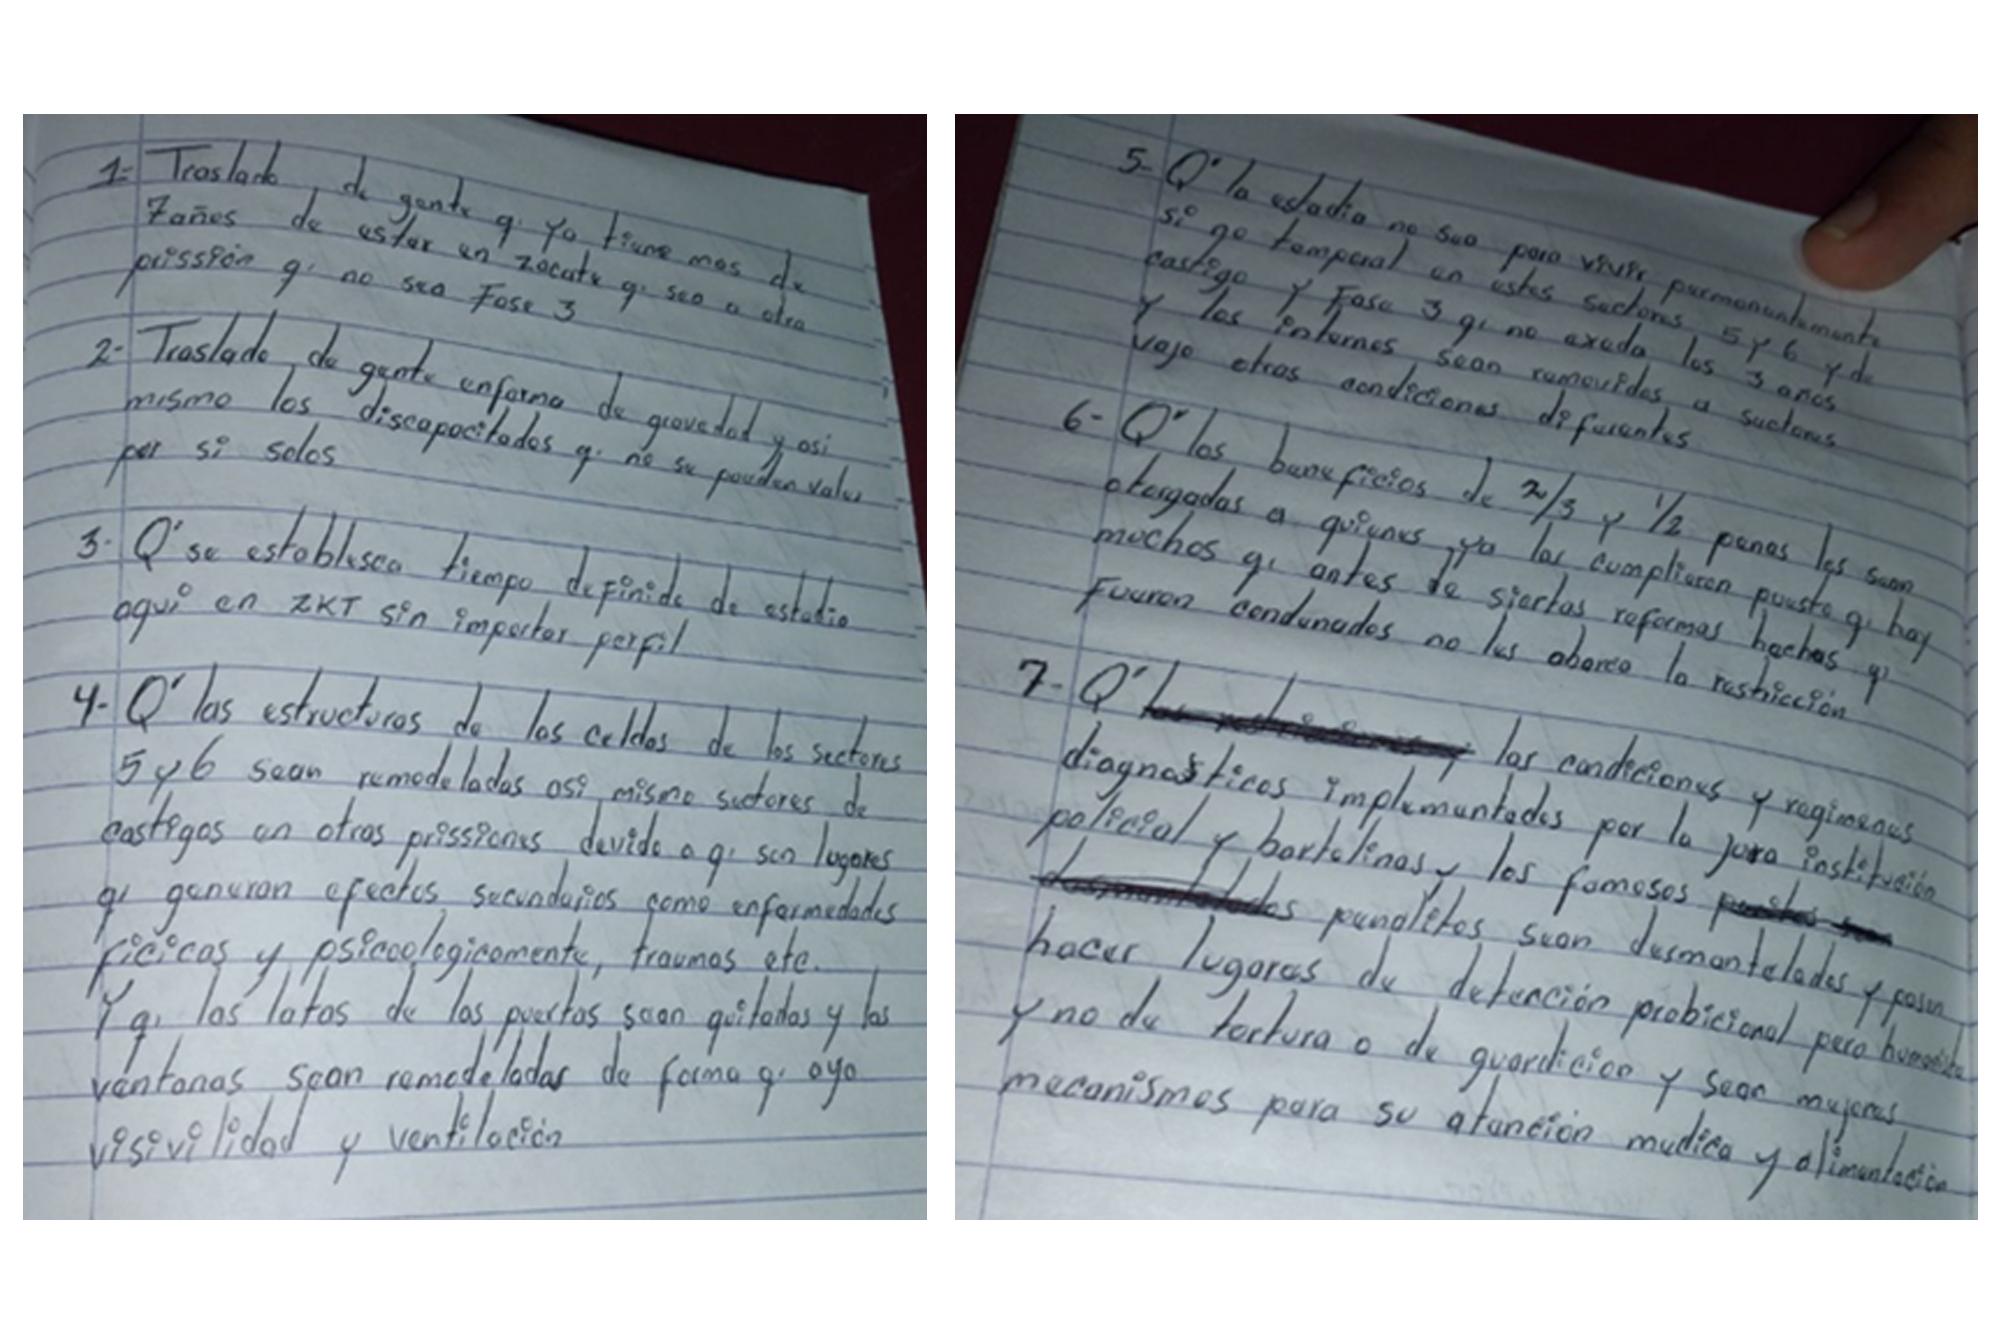 1- Traslado de gente q' ya tiene mas de
7años de estar en zacate q' sea a otra
prissión q' no sea Fase 3
2- Traslado de gente enferma de gravedad y asi
mismo los discapacitados q' no se pueden valer
por si solos
3- Q' se establesca tiempo definido de estadia
aqui en ZKT sin importar perfil
4- Q' las estructuras de las celdas de los sectores
5 y 6 sean remodeladas asi mismo sectores de
castigos en otras prissiones devido a q' son lugares
q' generan efectos secundarios como enfermedades
ficicas y psicoologicamente, traumas etc.
Y q' las latas de las puertas sean quitadas y las
ventanas sean remodeladas de forma q' aya
visivilidad y ventilación
5- Q' la estadia no sea para vivir permanentemente
si no temporal en estes sectores 5 y 6 y de
castigo y Fase 3 q' no exeda los 3 anos
y los internos sean removidos a sectores
vajo otras condiciones diferentes
6- Q' los beneficios de 2/3 y 1/2 penas les sean
otorgadas a quienes ya las cumplieron puesto q' hay
muchos q' antes de siertas reformas hechas q'
Fueron condenados no les abarca la restricción
7- Q' las condiciones y regimenes
diagnosticos implementados por la jura institución
policial y bartolinas y los famosos
penalitos sean desmantelados y pasen
hacer lugares de detención probicional pero humanista
y no de tortura o de guardicion y sean mejores
mecanismos para su atención medica y alimentación